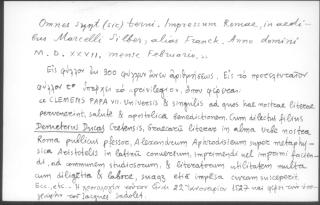 Omnes sunt (sic) terni. Impressum Romae, in aedi-
bus Marcelli Silber, alias Franck. Anno domini
M.D.XXVII, mense Februario.
Εἰς φύλλον ἓν 300 φύλλων ἄνευ ἀριθμήσεως. Εἰς τὸ
φύλλον 1ον ὑπάρχει τὸ privilegion, ὅπου φέρεται:
CLEMENS PAPA VII. Universis & singulis ad quos hae nostrae literae
pervenerint, salute & apostolica benedictionem. Cum dilectus filius
Demetrius Ducas Cretensis, Graecarũ literarum in alma urbe nostra
Roma publicus professor, Alexandrum Aphrodisieum super metaphy-
sica Aristotelis in latinũ conversum, imprimendi vel imprimi facien-
di, ad communem studiosorum, & literatorum utilitatem multa
cum diligentia & labore, suaque impensa curam susceperit.
Ecc, etc. Ἡ χρονολογία 22 Ἰανουαρίου 1527 καὶ φέρει τὴν ὑπο-
γραφὴν τοῦ Jacques Sadolet.